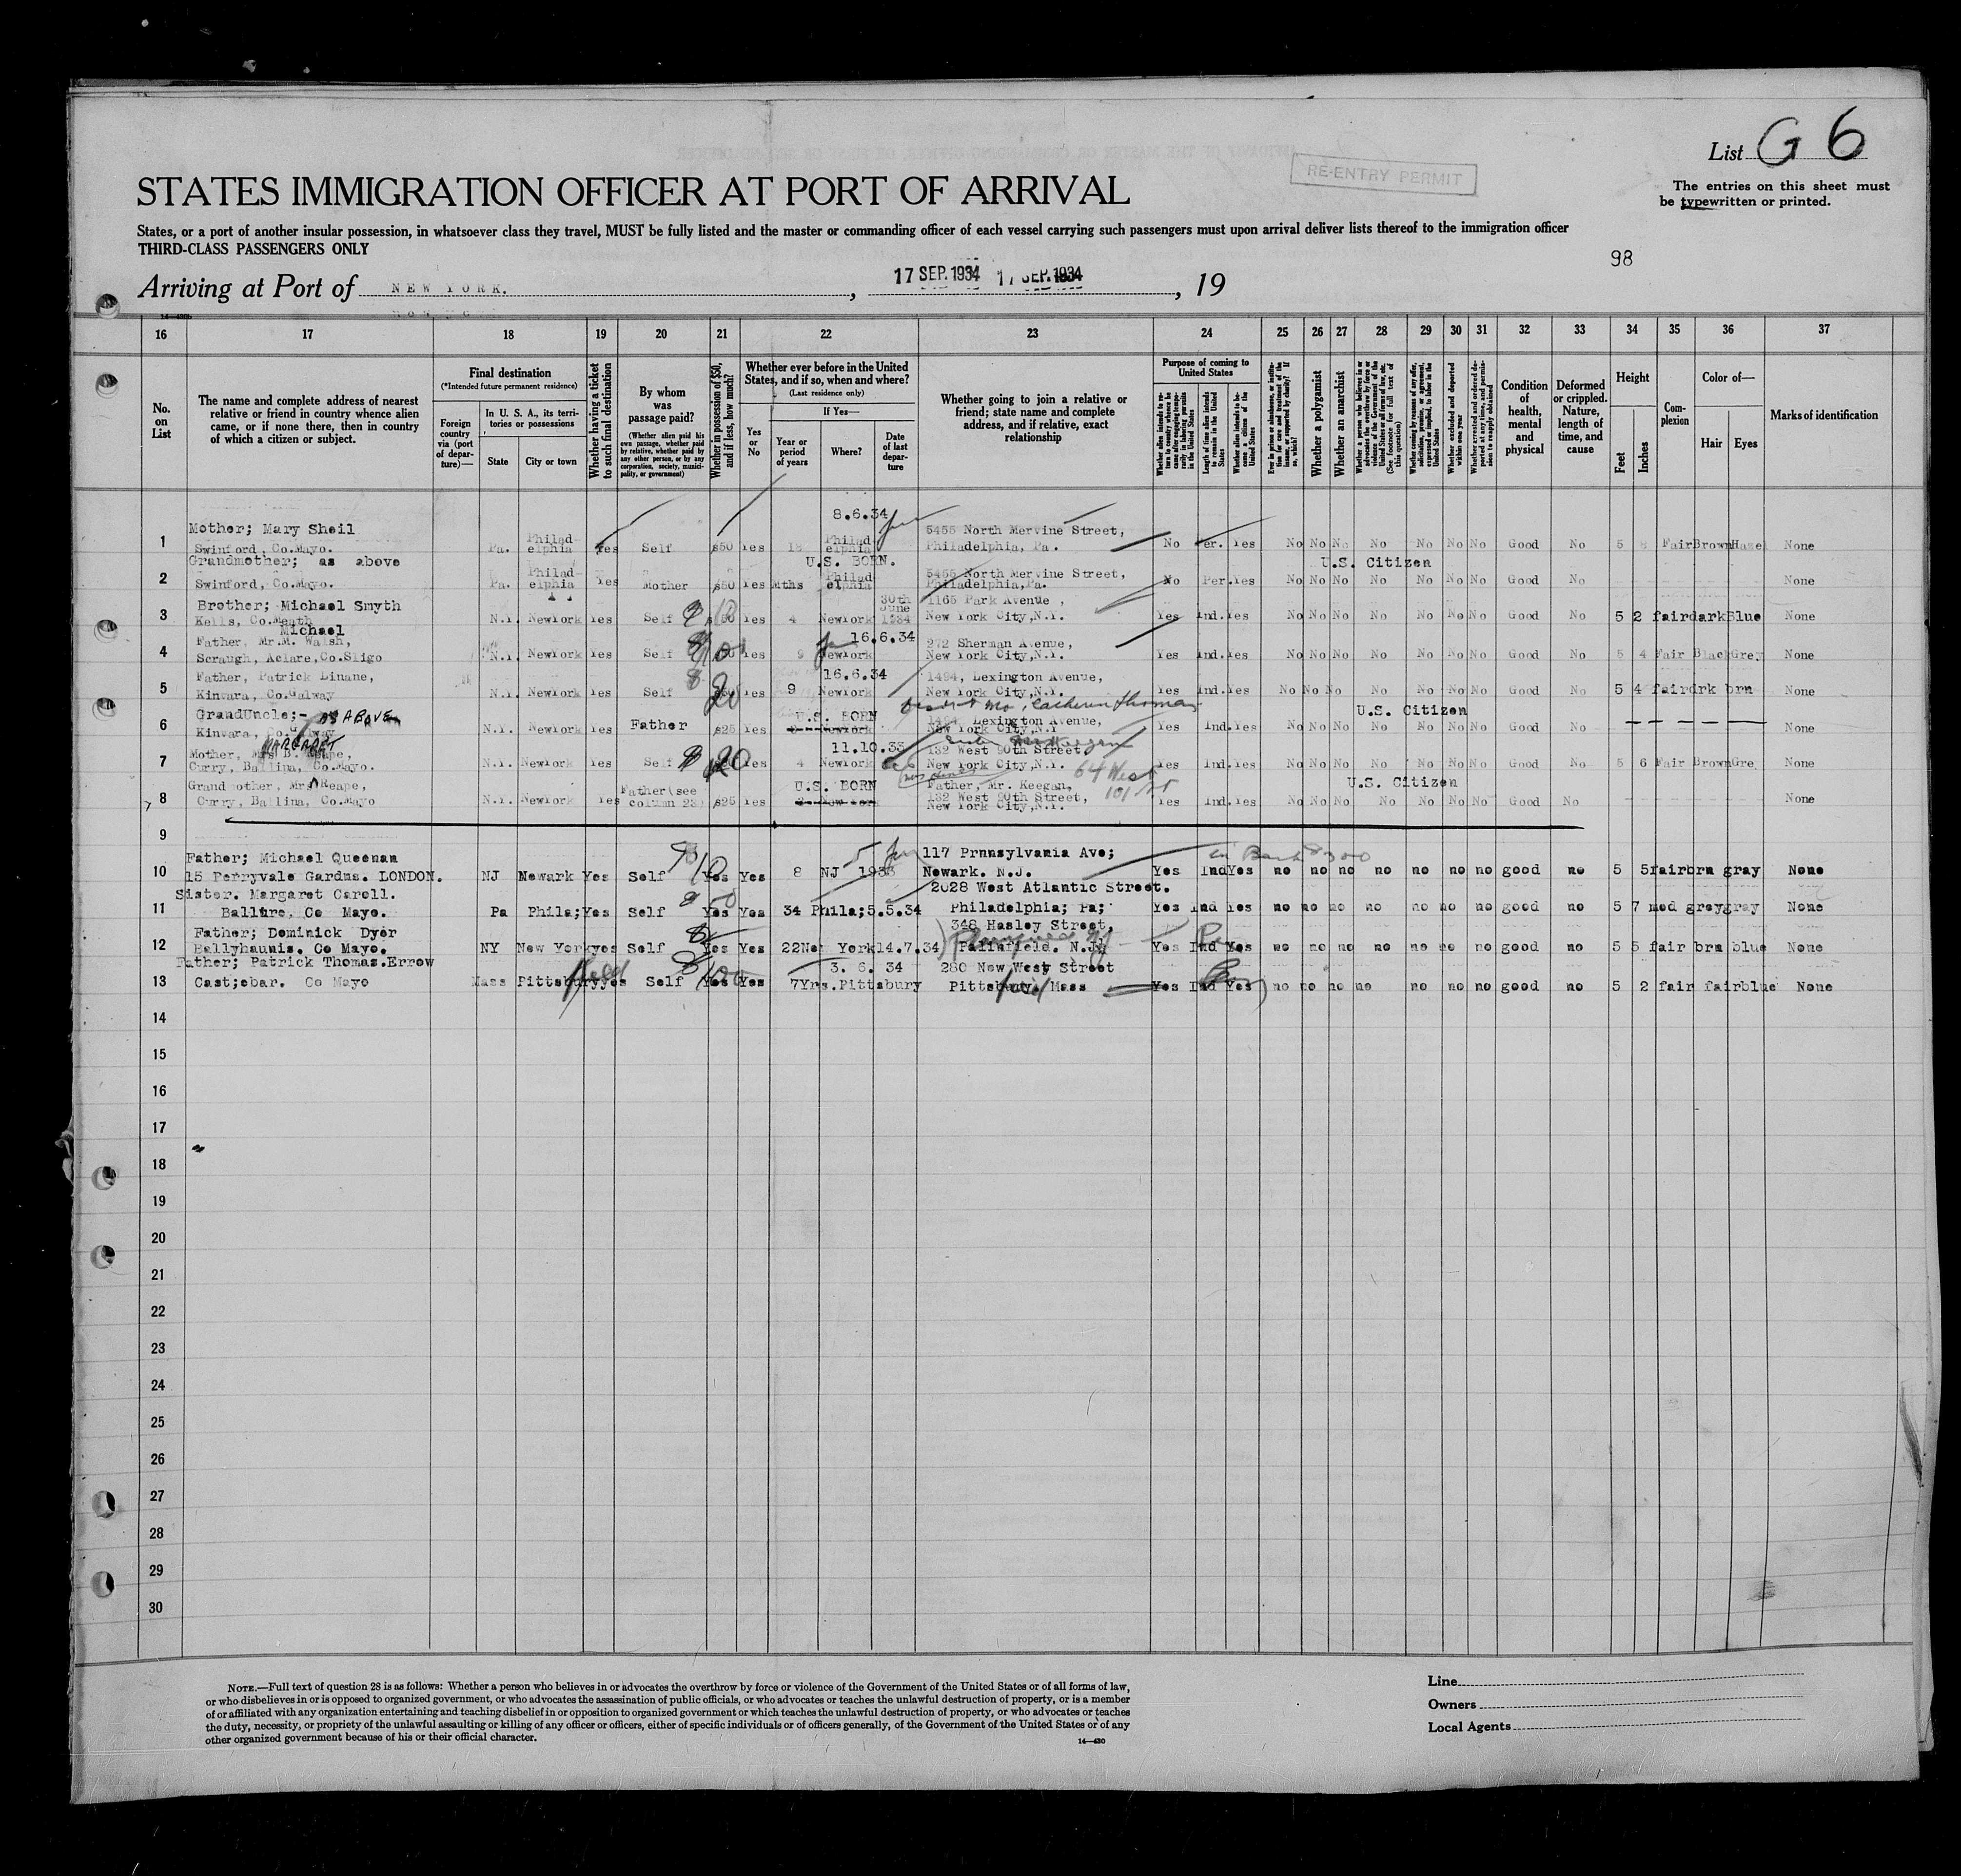 List G 6
RE-ENTRY PERMIT
The entries on this sheet must
be typewritten or printed.
STATES IMMIGRATION OFFICER AT PORT OF ARRIVAL
States, or a port of another insular possession, in whatsoever class they travel, MUST be fully listed and the master or commanding officer of each vessel carrying such passengers must upon arrival deliver lists thereof to the immigration officer
THIRD-CLASS PASSENGERS ONLY
98
Arriving at Port of NEW YORK. , 17 SEP. 1934 17 SEP. 1934 , 19
16 17 18 19 20 21 22 23 24 25 26 27 28 29 30 31 32 33 34 35 36 37
No. on List
The name and complete address of nearest relative or friend in country whence alien came, or if none there, then in country of which a citizen or subject.
Final destination
(*Intended future permanent residence)
Foreign country via (port of departure)—
In U. S. A., its territories or possessions
State
City or town
Whether having a ticket to such final destination
By whom was passage paid?
(Whether alien paid his own passage, whether paid by relative, whether paid by any other person, or by any corporation, society, municipality, or government)
Whether in possession of $50, and if less, how much?
Whether ever before in the United States, and if so, when and where?
(Last residence only)
Yes or No
If Yes—
Year or period of years
Where?
Date of last departure
Whether going to join a relative or friend; state name and complete address, and if relative, exact relationship
Purpose of coming to United States
Whether a polygamist
Whether an anarchist
Condition of health, mental and physical
Deformed or crippled. Nature, length of time, and cause
Height
Feet
Inches
Complexion
Color of—
Hair
Eyes
Marks of identification
8.6.34
Mother; Mary Sheil 5455 North Mervine Street,
1 Swinford, Co.Mayo. Pa. Philadelphia Yes Self $50 Yes Philadelphia Philadelphia, Pa. No Per. Yes No No No No No No No Good No 5 Fair Brown Hazel None
Grandmother; as above U.S. BORN. U.S. Citizen
2 Swinford, Co.Mayo. Pa. Philadelphia Yes Mother $50 Yes Mths Philadelphia 5455 North Mervine Street, Philadelphia, Pa. No Per. Yes No No No No No No No Good No None
Brother; Michael Smyth 30th June 1165 Park Avenue,
3 Kells, Co.Meath N.Y. NewYork Yes Self Yes 4 NewYork 1934 New York City, N.Y. Yes Ind. Yes No No No No No No No Good No 5 2 fair dark Blue None
Michael
Father, Mr.M. Walsh, 16.6.34 272 Sherman Avenue,
4 Scraugh, Aclare, Co.Sligo N.Y. NewYork Yes Self Yes 9 NewYork New York City, N.Y. Yes Ind. Yes No No No No No No No Good No 5 4 Fair Black Grey None
Father, Patrick Linane, 16.6.34 1494, Lexington Avenue,
5 Kinvara, Co.Galway N.Y. NewYork Yes Self 20 Yes 9 NewYork New York City, N.Y. Yes Ind. Yes No No No No No No No Good No 5 4 fair drk brn None
GrandUncle;- AS ABOVE U.S. BORN 1494, Lexington Avenue, U.S. Citizen
6 Kinvara, Co.Galway N.Y. NewYork Yes Father $25 Yes NewYork New York City, N.Y Yes Ind. Yes No No No No No No No Good No None
MARGARET
Mother, Mrs B. Reape, 11.10.33 132 West 90th Street,
7 Curry, Ballina, Co.Mayo. N.Y. NewYork Yes Self 20 Yes 4 NewYork New York City, N.Y. 64 West 101 St Yes Ind. Yes No No No No No No No Good No 5 6 Fair Brown Gre None
Grandmother, Mrs Reape, U.S. BORN Father, Mr. Keegan, U.S. Citizen
8 Curry, Ballina, Co.Mayo N.Y. NewYork Yes Father (see column 23) $25 Yes New York 132 West 90th Street, New York City, N.Y. Yes Ind. Yes No No No No No No No Good No None
9
Father; Michael Queenan 117 Prnnsylvania Ave;
10 15 Perryvale Gardns. LONDON. NJ Newark Yes Self Yes Yes 8 NJ 1933 Newark. N.J. Yes Ind Yes no no no no no no no good no 5 5 fair brn gray None
Sister. Margaret Carell. 2028 West Atlantic Street.
11 Ballure, Co Mayo. Pa Phila; Yes Self Yes Yes 34 Phila; 5.5.34 Philadelphia; Pa; Yes Ind Yes no no no no no no no good no 5 7 med grey gray None
Father; Dominick Dyer 348 Hasley Street,
12 Ballyhaunis. Co Mayo. NY New York yes Self Yes Yes 22 New York 14.7.34 N.J. Yes Ind Yes no no no no no no no good no 5 5 fair brn blue None
Father; Patrick Thomas.Errow 3. 6. 34 280 New West Street
13 Cast;ebar. Co Mayo Mass Pittsbury field yes Self 100 Yes Yes 7Yrs. Pittsbury Pittsbury Mass Yes Ind Yes no no no no no no no good no 5 2 fair fair blue None
14
15
16
17
18
19
20
21
22
23
24
25
26
27
28
29
30
NOTE.—Full text of question 28 is as follows: Whether a person who believes in or advocates the overthrow by force or violence of the Government of the United States or of all forms of law,
or who disbelieves in or is opposed to organized government, or who advocates the assassination of public officials, or who advocates or teaches the unlawful destruction of property, or is a member
of or affiliated with any organization entertaining and teaching disbelief in or opposition to organized government or which teaches the unlawful destruction of property, or who advocates or teaches
the duty, necessity, or propriety of the unlawful assaulting or killing of any officer or officers, either of specific individuals or of officers generally, of the Government of the United States or of any
other organized government because of his or their official character.
14—430
Line
Owners
Local Agents